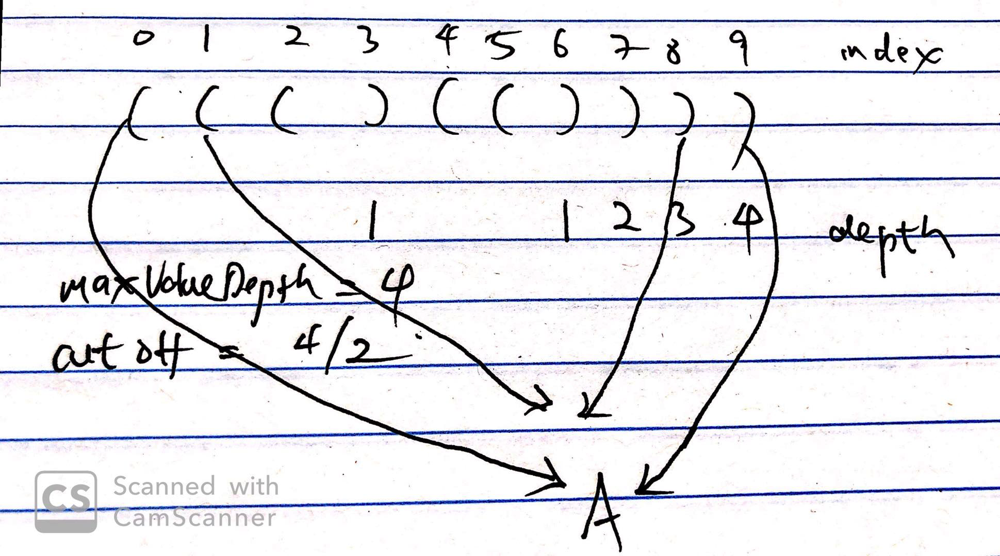 0 1 2 3 4 5 6 7 8 9 index
( ( ( ) ( ( ) ) ) )
1 1 2 3 4 depth
maxValueDepth = 4
cut off = 4/2
A
CS Scanned with
CamScanner